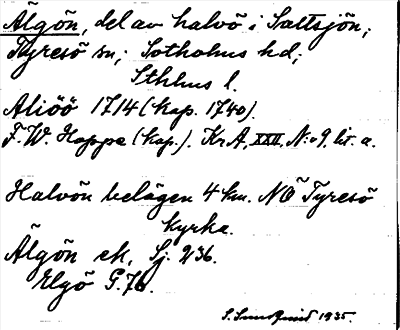 Älgön, del av halvö i Saltsjön,
Tyresö sn; Sotholms hd;
Sthlms l.
Aliöö 1714 (kop. 1740).
F. W. Hoppe (kop.). KrA, XXII, N:o 9. lit. a.
Halvön belägen 4 km. NÖ Tyresö
kyrka.
Älgön ek, Sj. 236.
Elgö G. 76.
S. Sundquist 1935.